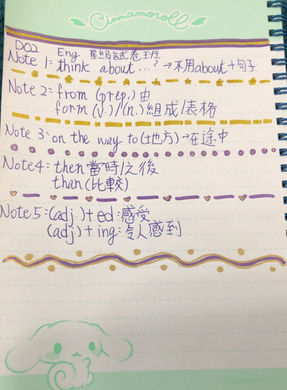 Cinnamoroll
DQ2 Eng
Note 1: think about...? → 不用about+句子
Note 2: from (prep.) 由
form (v.)/(n.) 組成/表格
Note 3: on the way to(+地方) → 在途中
Note4: then 當時/之後
than (比較)
Note5: (adj.)+ed: 感受
(adj.)+ing: 令人感到